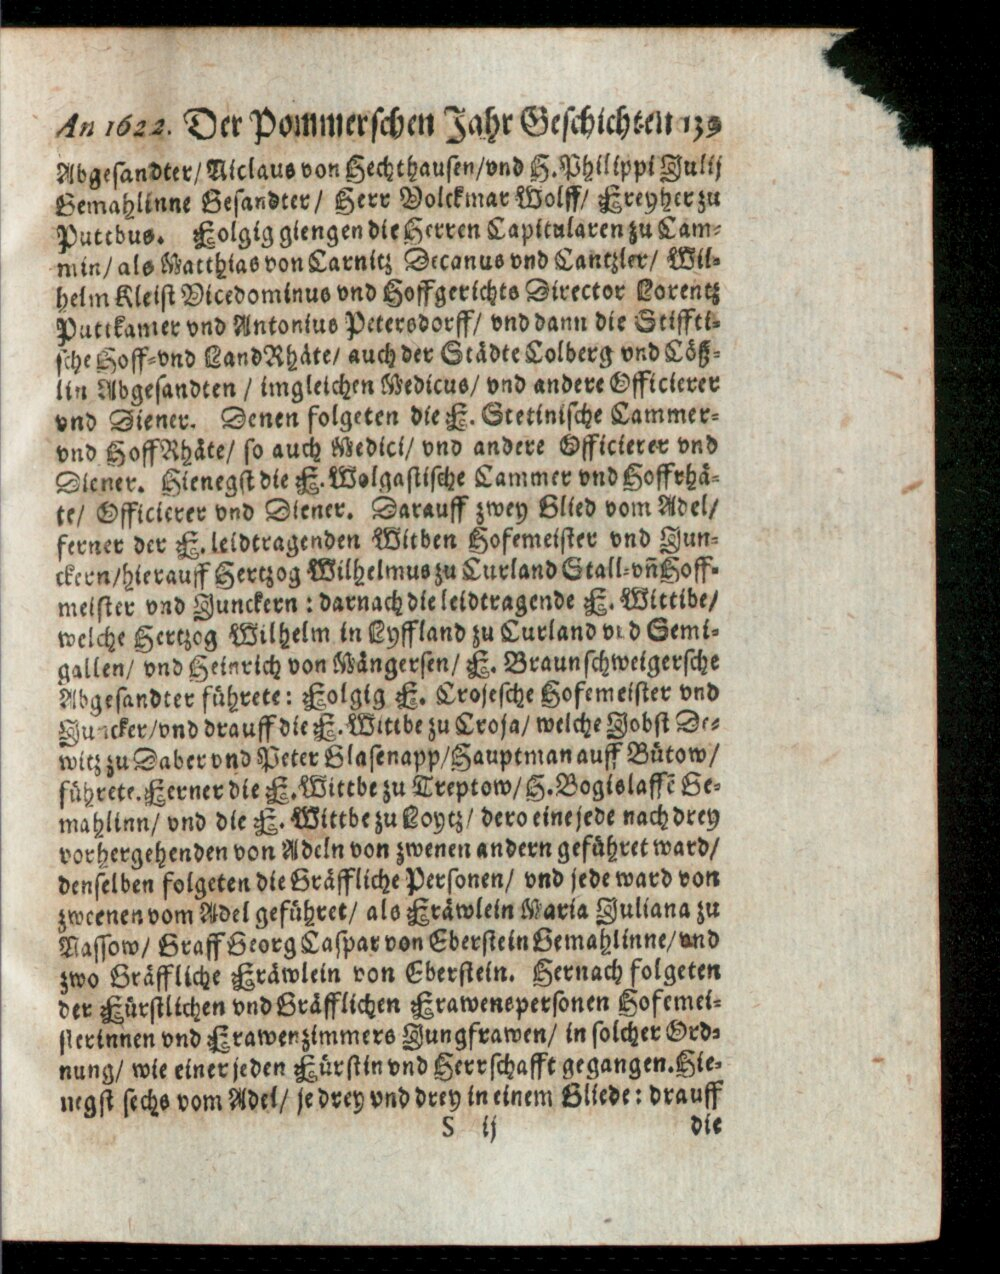 An 1622. Der Pommerschen Jahr Geschichten 139
Abgesandter/ Niclaus von Hechthausen/vnd H. Philippi Julij
Gemahlinne Gesandter/ Herr Volckmar Wolff/ Freyher zu
Puttbus. Folgig giengen die Herren Capitularen zu Cam-
min/ als Matthias von Carnitz Decanus vnd Cantzler/ Wil-
helm Kleist Vicedominus vnd Hoffgerichts Director Lorentz
Puttkamer vnd Antonius Petersdorff/ vnd dann die Stiffti-
sche Hoff-vnd LandRhäte/ auch der Städte Colberg vnd Cöß-
lin Abgesandten / imgleichen Medicus/ vnd andere Officierer
vnd Diener. Denen folgeten die F. Stetinische Cammer-
vnd HoffRhäte/ so auch Medici/ vnd andere Officierer vnd
Diener. Hienegst die F. Wolgastische Cammer vnd Hoffrhä-
te/ Officierer vnd Diener. Darauff zwey Glied vom Adel/
ferner der F. leidtragenden Witben Hofemeister vnd Jun-
ckern/hierauff Hertzog Wilhelmus zu Curland Stall-vn̄ Hoff-
meister vnd Junckern : darnach die leidtragende F. Wittibe/
welche Hertzog Wilhelm in Lyffland zu Curland vnd Semi-
gallen/ vnd Heinrich von Mängersen/ F. Braunschweigersche
Abgesandter führete: Folgig F. Crojesche Hofemeister vnd
Juncker/vnd drauff die F. Wittbe zu Croja/ welche Jobst De-
witz zu Daber vnd Peter Glasenapp/Hauptman auff Bütow/
führete. Ferner die F. Wittbe zu Treptow/ H. Bogislaffē Ge-
mahlinn/ vnd die F. Wittbe zu Loytz/ dero eine jede nach drey
vorhergehenden von Adeln von zwenen andern geführet ward/
denselben folgeten die Gräffliche Personen/ vnd jede ward von
zweenen vom Adel geführet/ als Fräwlein Maria Juliana zu
Nassow/ Graff Georg Caspar von Eberstein Gemahlinne/ vnd
zwo Gräffliche Fräwlein von Eberstein. Hernach folgeten
der Fürstlichen vnd Gräfflichen Frawenspersonen Hofemei-
sterinnen vnd Frawenzimmers Jungfrawen/ in solcher Ord-
nung/ wie einer jeden Fürstin vnd Herrschafft gegangen. Hie-
negst sechs vom Adel/ je drey vnd drey in einem Gliede: drauff
S ij die